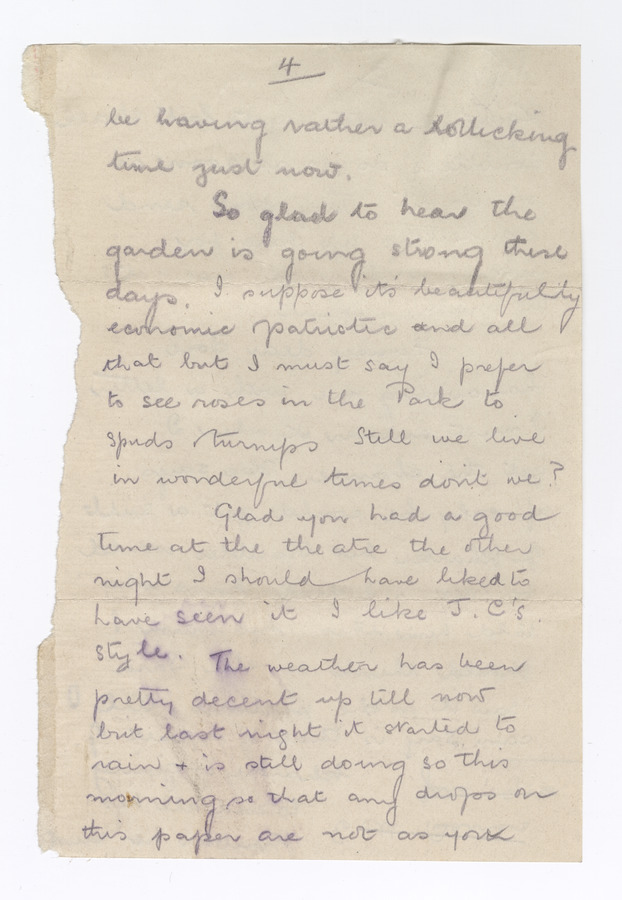 4
be having rather a rollicking
time just now.
So glad to hear the
garden is going strong these
days. I suppose it's beautifully
economic patriotic and all
that but I must say I prefer
to see roses in the Park to
spuds turnips Still we live
in wonderful times don't we?
Glad you had a good
time at the theatre the other
night I should have liked to
have seen it I like J.C's.
style. The weather has been
pretty decent up till now
but last night it started to
rain + is still doing so this
morning so that any drops on
this paper are not as you